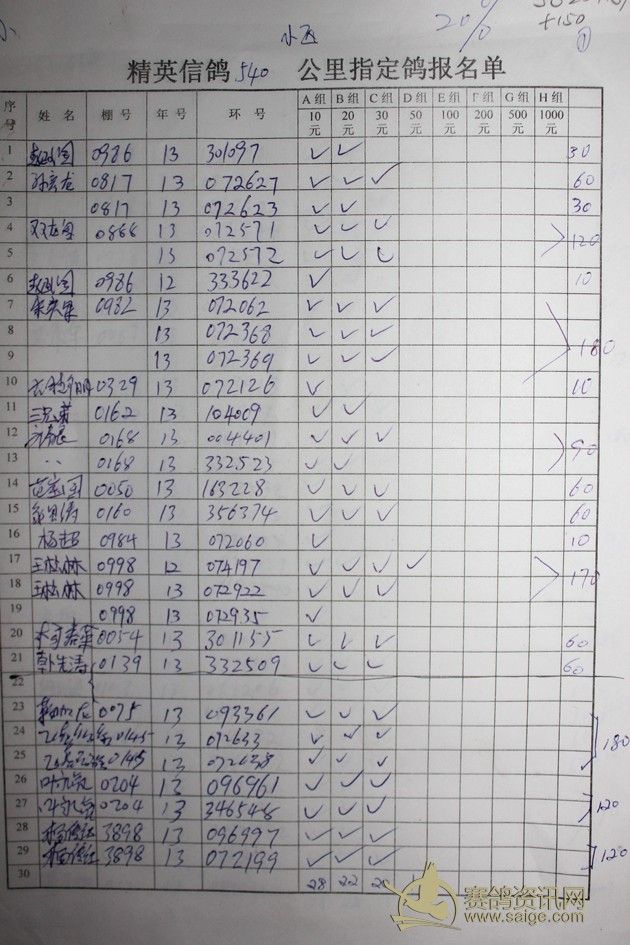 20%
+150
①
精英信鸽 540 公里指定鸽报名单
序号 姓名 棚号 年号 环号 A组10元 B组20元 C组30元 D组50元 E组100元 F组200元 G组500元 H组1000元
1 0986 13 301097 ✓ ✓ 30
2 0817 13 072627 ✓ ✓ ✓ 60
3 0817 13 072623 ✓ ✓ 30
4 0888 13 072571 ✓ ✓ ✓ 120
5 13 072572 ✓ ✓ ✓
6 0986 12 333622 ✓ 10
7 0982 13 072062 ✓ ✓ ✓
8 13 072368 ✓ ✓ ✓ 180
9 13 072369 ✓ ✓ ✓
10 0329 13 072126 ✓ 10
11 三兄弟 0162 13 104009 ✓ ✓
12 0168 13 004401 ✓ ✓ ✓ 90
13 〃 0168 13 332523 ✓ ✓
14 范宝国 0050 13 163228 ✓ ✓ ✓ 60
15 0160 13 356374 ✓ ✓ ✓ 60
16 杨超 0984 13 072060 ✓ 10
17 0998 12 074197 ✓ ✓ ✓ ✓ 170
18 0998 13 072922 ✓ ✓ ✓
19 0998 13 072935 ✓
20 0054 13 301155 ✓ ✓ ✓ 60
21 韩先涛 0139 13 332509 ✓ ✓ ✓ 60
22
23 0075 13 093361 ✓ ✓ ✓
24 0145 13 072633 ✓ ✓ ✓ 180
25 0145 13 ✓ ✓ ✓
26 0204 13 096961 ✓ ✓ ✓
27 0204 13 346548 ✓ ✓ ✓ 120
28 3898 13 096997 ✓ ✓ ✓
29 3898 13 072199 ✓ ✓ ✓ 120
30 28 22 20 1
赛鸽资讯网
www.saige.com